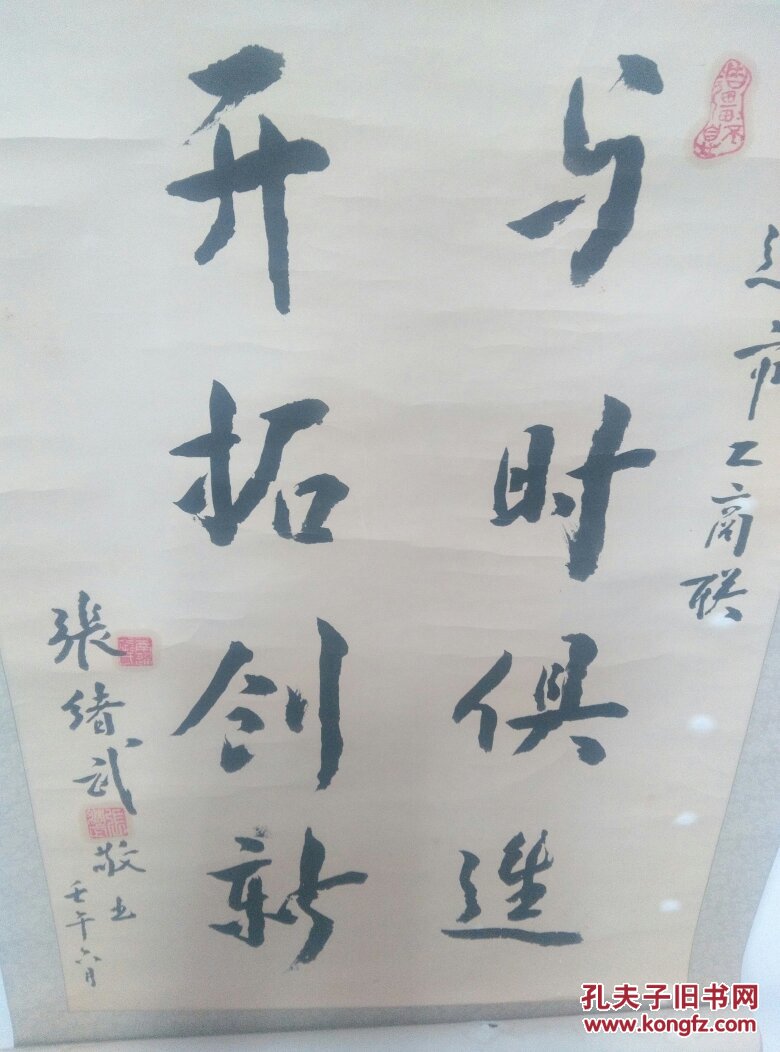 市工商联
与时俱進
开拓创新
張绪武
敬书
壬午六月
孔夫子旧书网
www.kongfz.com